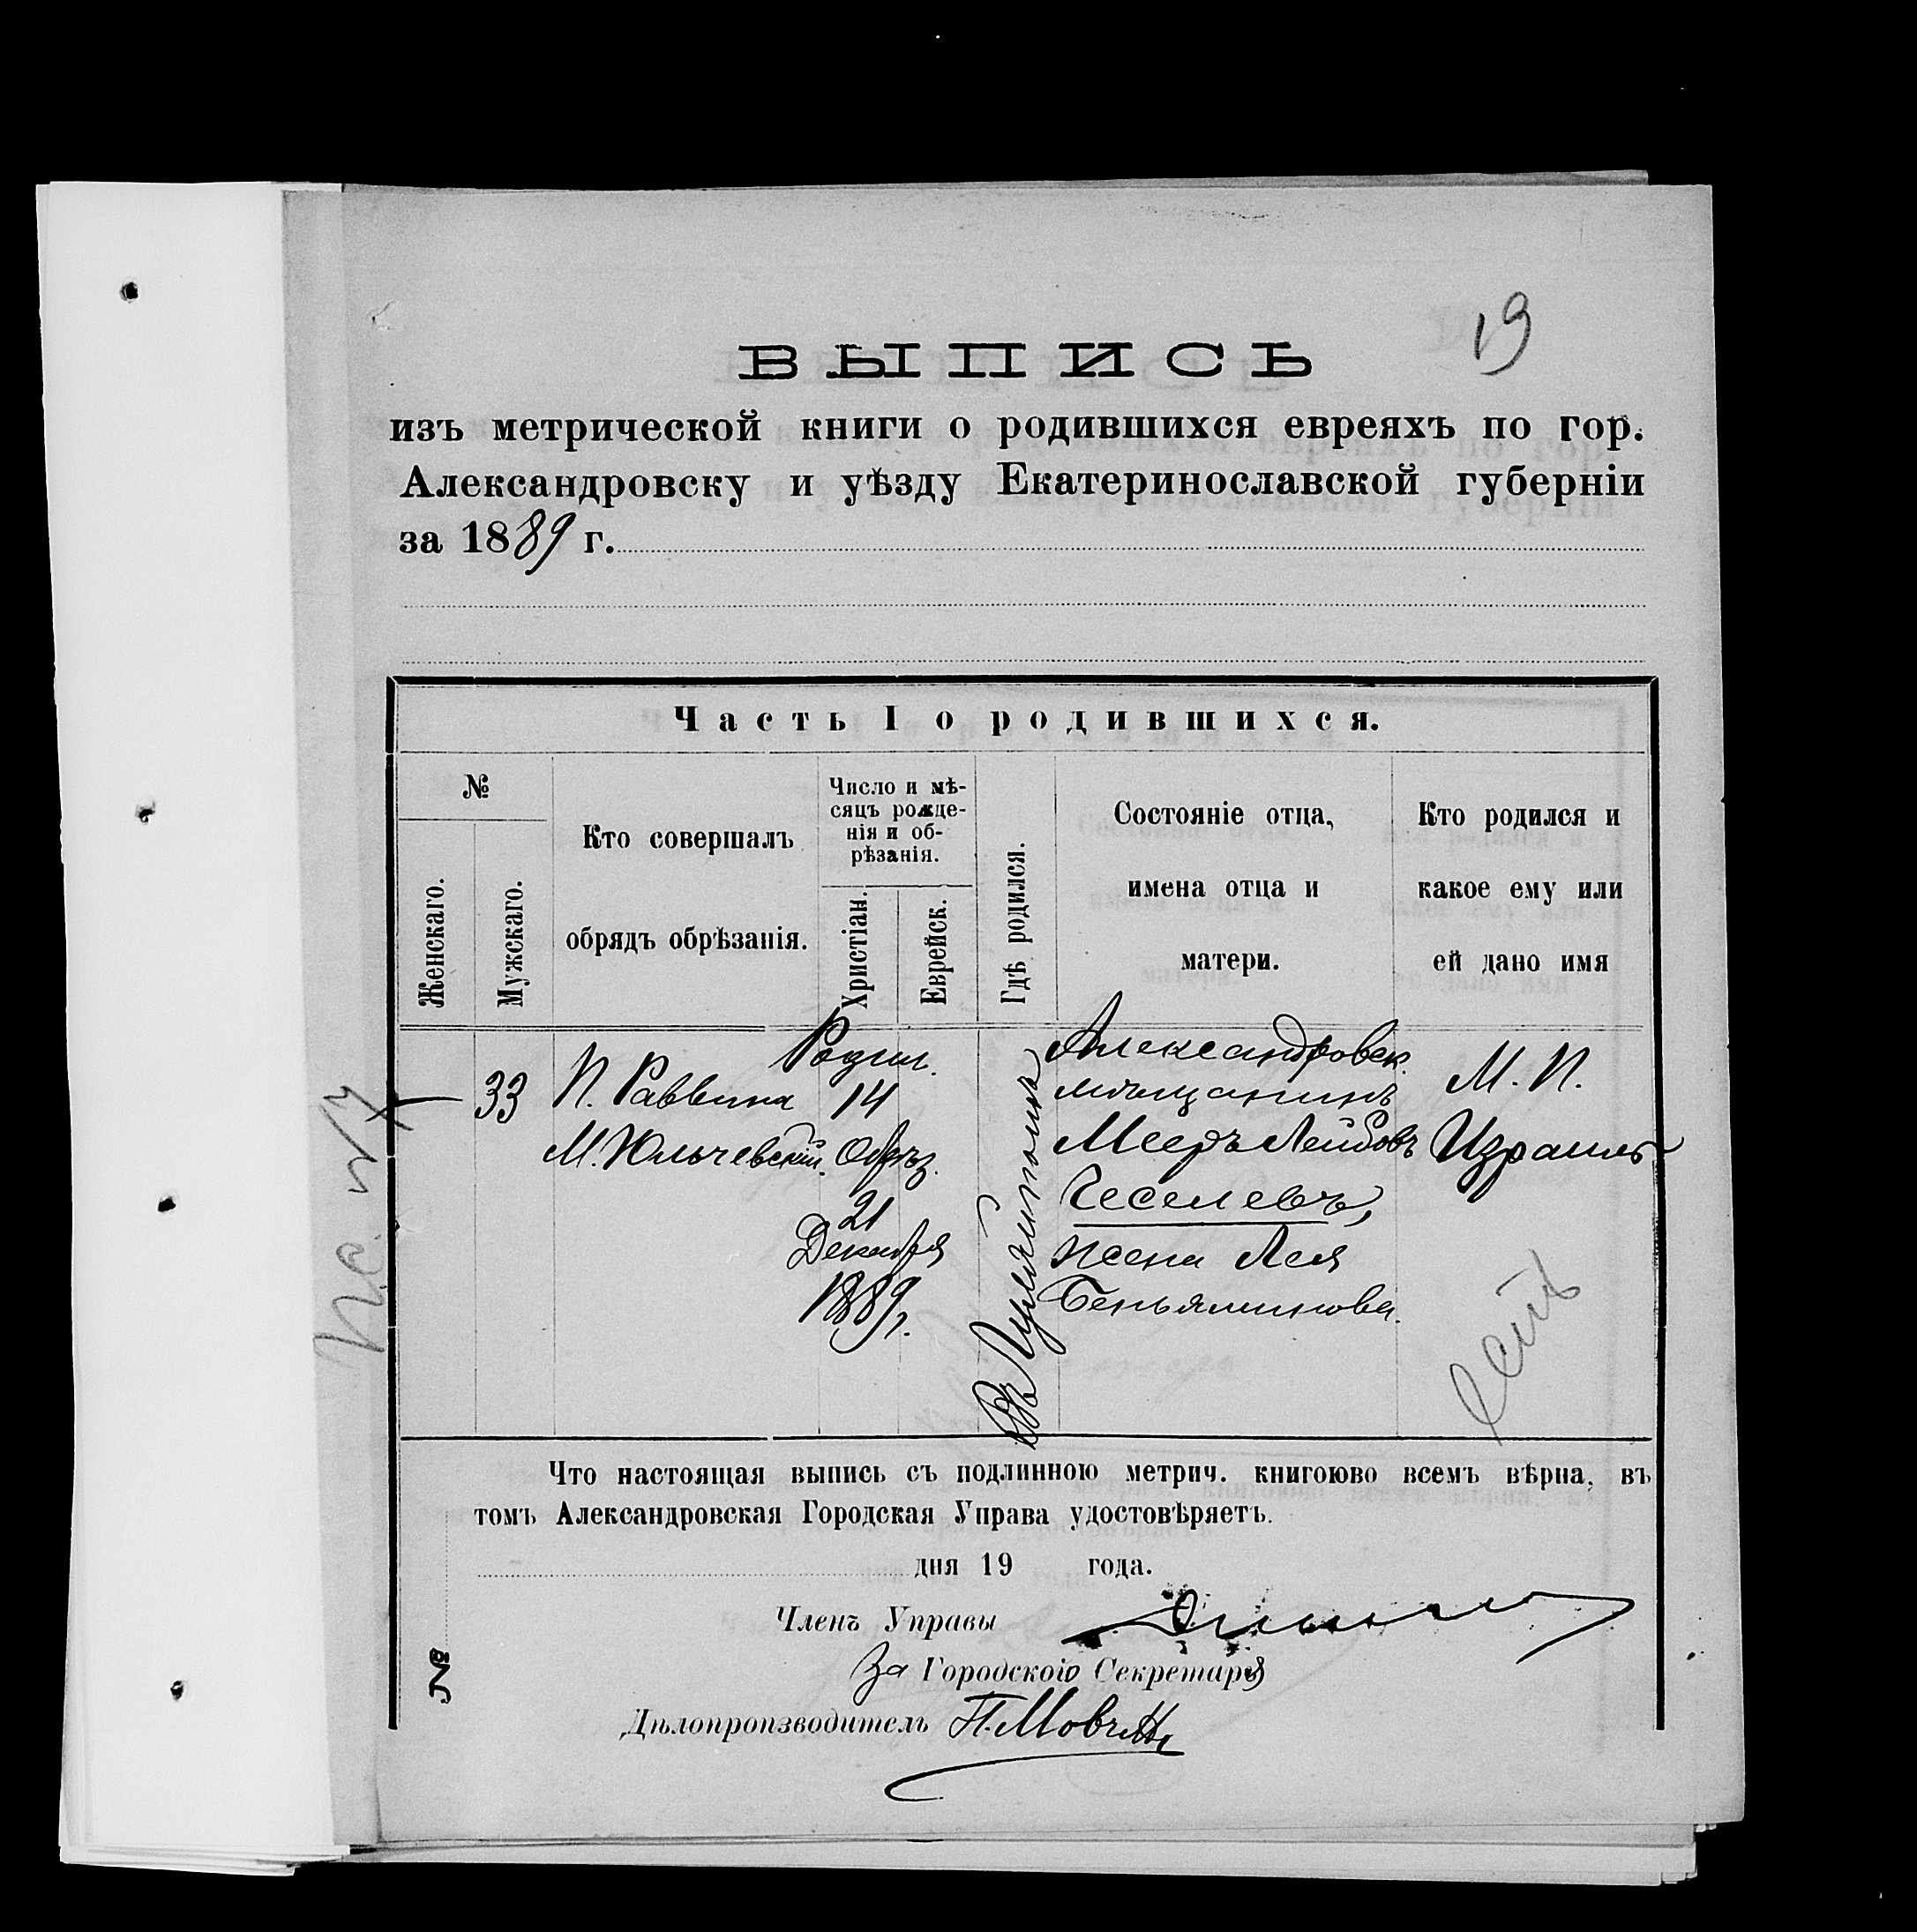 19
ВЫПИСЬ
изъ метрической книги о родившихся евреяхъ по гор.
Александровску и уѣзду Екатеринославской губерніи
за 1889 г.
Часть I о родившихся.
№
Женскаго.
Мужскаго.
Кто совершалъ
обрядъ обрѣзанія.
Число и мѣ-
сяцъ рожде-
нія и об-
рѣзанія.
Христіан.
Еврейск.
Гдѣ родился.
Состояніе отца,
имена отца и
матери.
Кто родился и
какое ему или
ей дано имя
33
П. Раввина
М. Юльчевскій.
Родил.
14
Обрѣз.
21
Декабря
1889 г.
Въ
Александровск.
мѣщанинъ
Мееръ Лейбовъ
Геселевъ,
жена Лея
Беньяминова.
М. П.
Израиль
есть
Что настоящая выпись съ подлинною метрич. книгоюво всемъ вѣрна, въ
томъ Александровская Городская Управа удостовѣряетъ.
дня 19 года.
Членъ Управы
За Городского Секретаря
№
Дѣлопроизводитель